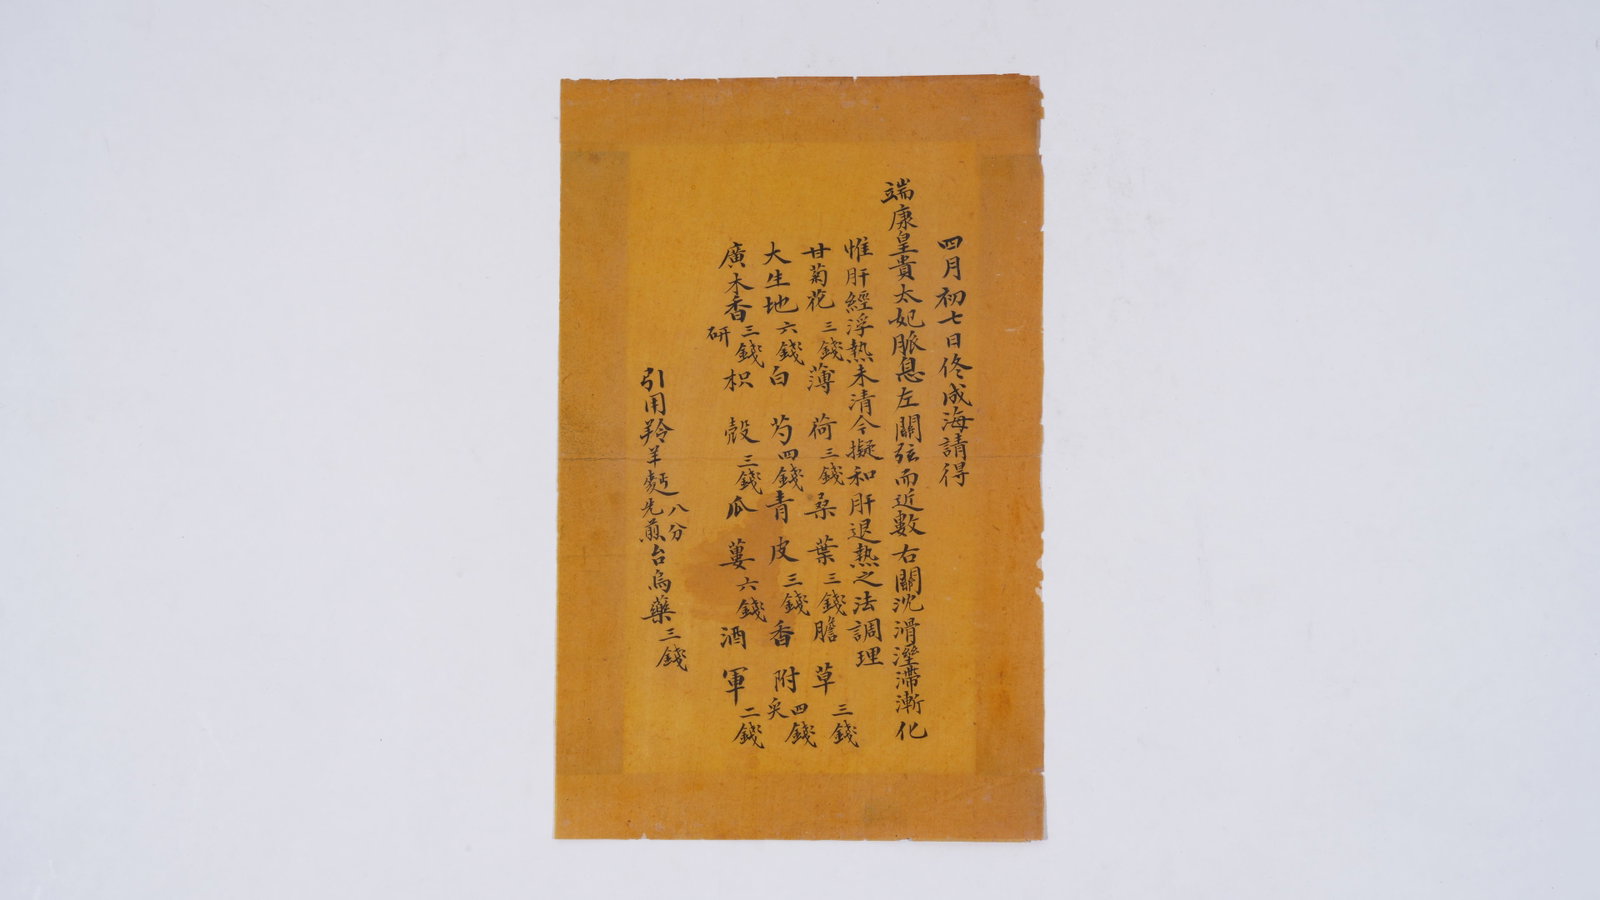 四月初七日佟成海請得
端康皇貴太妃脈息左關弦而近數右關沈滑溼滯漸化
惟肝經浮熱未清今擬和肝退熱之法調理
甘菊花三錢薄荷三錢桑葉三錢膽草三錢
大生地六錢白芍四錢青皮三錢香附炙四錢
廣木香研三錢枳殼三錢瓜蔞六錢酒軍二錢
引用羚羊麪八分先煎台烏藥三錢